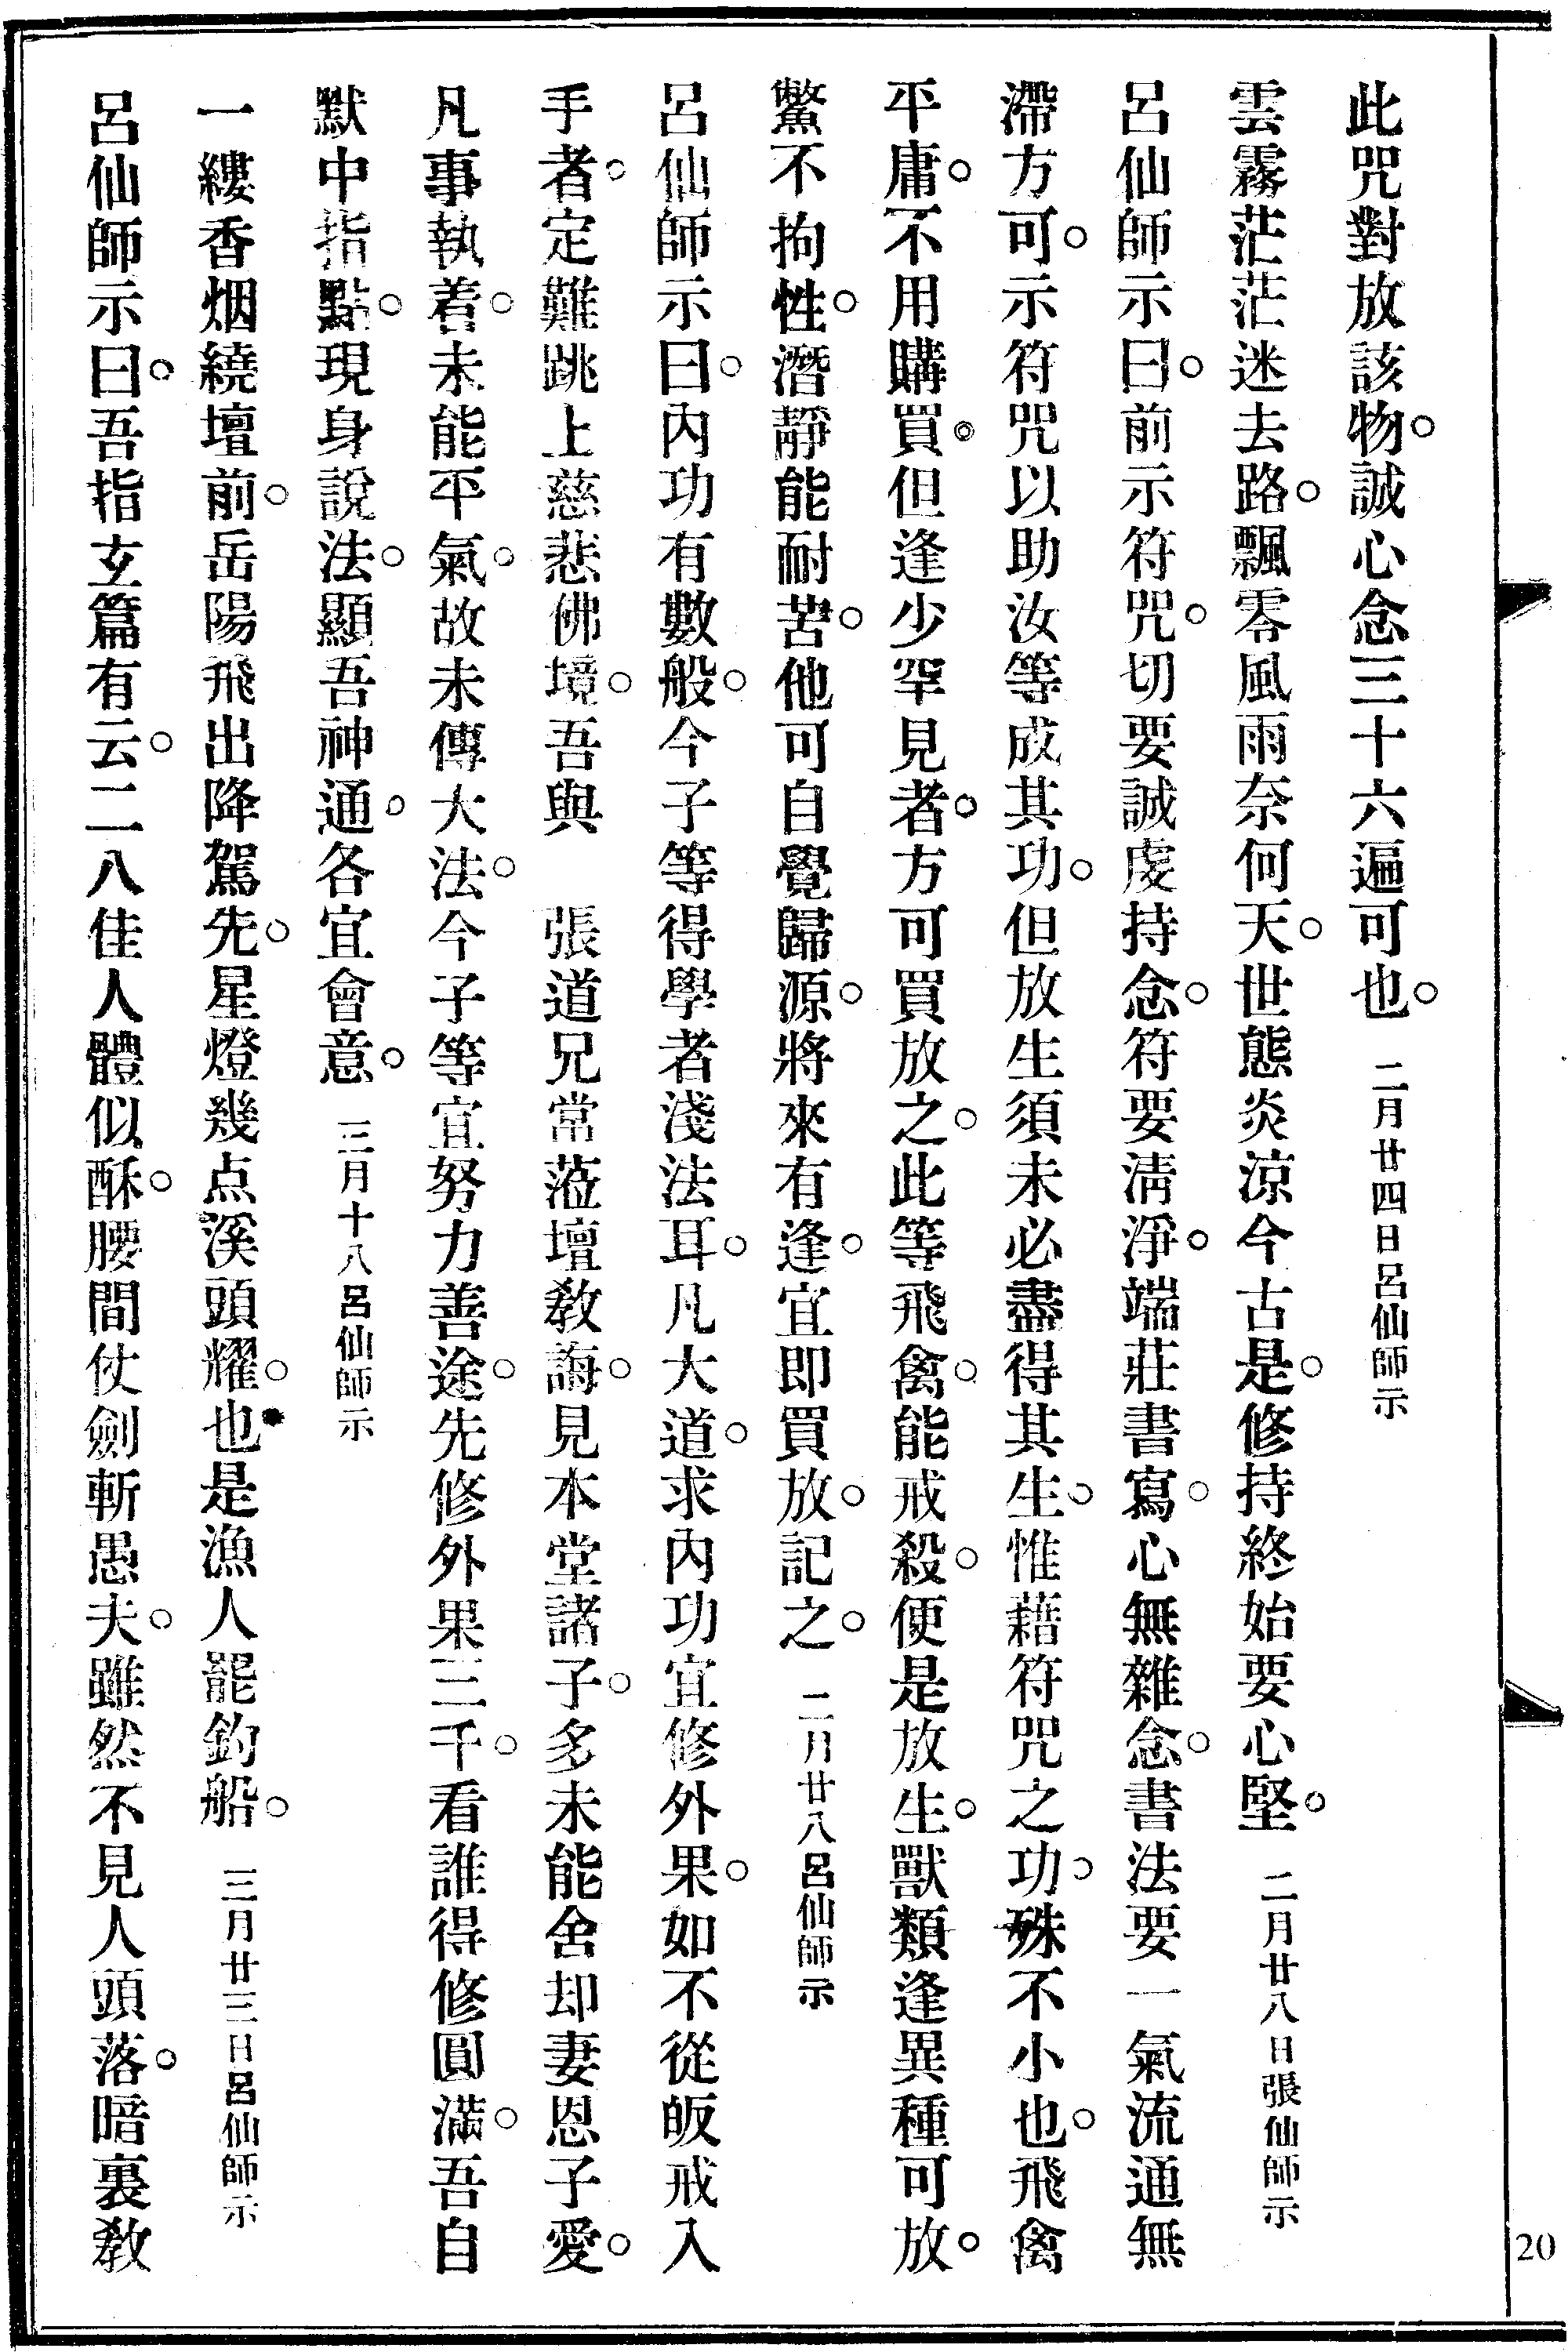 此咒對放該物。誠心念三十六遍可也。 二月廿四日呂仙師示
雲霧茫茫迷去路。飄零風雨奈何天。世態炎涼今古是。修持終始要心堅。 二月廿八日張仙師示
呂仙師示曰。前示符咒。切要誠虔持念。符要淸淨。端莊書寫。心無雜念。書法要一氣流通無
滯方可。示符咒以助汝等成其功。但放生須未必盡得其生。惟藉符咒之功。殊不小也。飛禽
平庸。不用購買。但逢少罕見者。方可買放之。此等飛禽。能戒殺。便是放生。獸類逢異種可放。
鱉不拘性。潛靜能耐苦。他可自覺歸源。將來有逢。宜即買放。記之。 二月廿八呂仙師示
呂仙師示曰。內功有數般。今子等得學者淺法耳。凡大道。求內功宜修外果。如不從皈戒入
手者。定難跳上慈悲佛境。吾與 張道兄常蒞壇敎誨。見本堂諸子。多未能舍却妻恩子愛。
凡事執着。未能平氣。故未傳大法。今子等宜努力善途。先修外果三千。看誰得修圓滿。吾自
默中指點。現身說法。顯吾神通。各宜會意。 三月十八呂仙師示
一縷香烟繞壇前。岳陽飛出降駕先。星燈幾点溪頭耀。也是漁人罷釣船。 三月廿三日呂仙師示
呂仙師示曰。吾指玄篇有云。二八佳人體似酥。腰間仗劍斬愚夫。雖然不見人頭落。暗裏敎
20